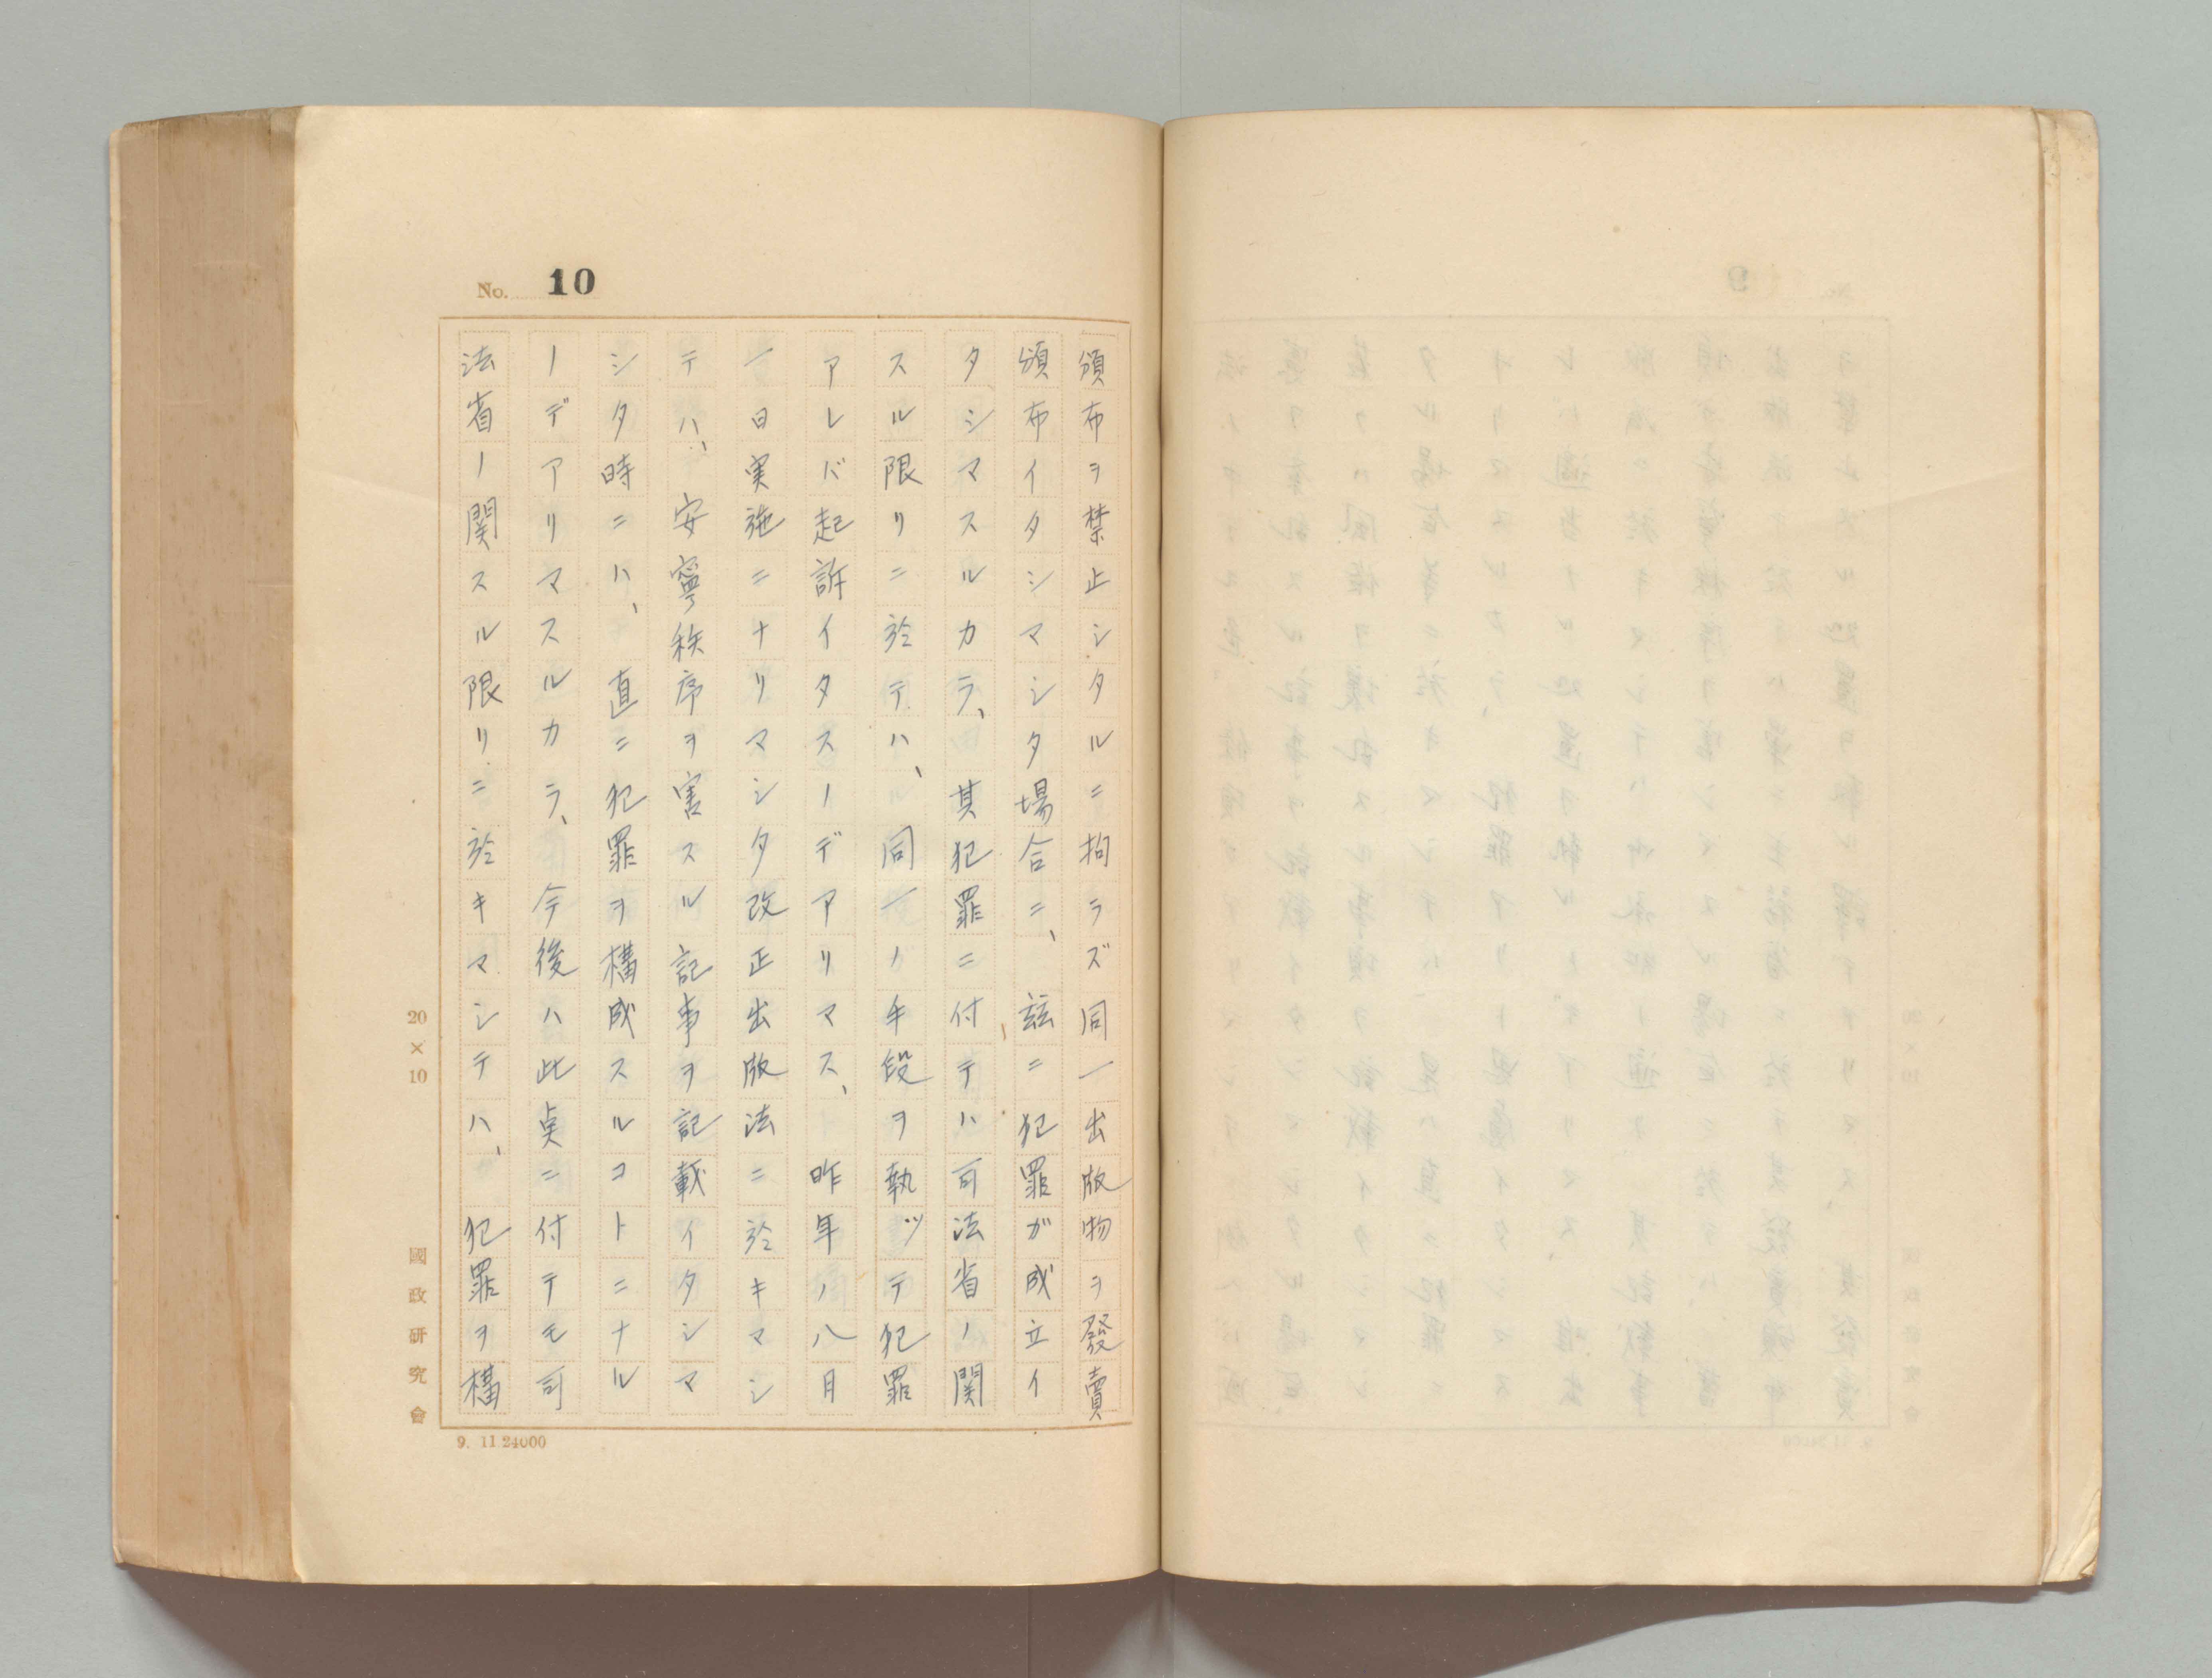 No. 10
頒布ヲ禁止シタルニ拘ラズ同一出版物ヲ發賣
頒布イタシマシタ場合ニ、茲ニ犯罪ガ成立イ
タシマスルカラ、其犯罪ニ付テハ司法省ノ関
スル限リニ於テハ、同一ノ手段ヲ執ッテ犯罪
アレバ起訴イタスノデアリマス、昨年ノ八月
一日実施ニナリマシタ改正出版法ニ於キマシ
テハ、安寧秩序ヲ害スル記事ヲ記載イタシマ
シタ時ニハ、直ニ犯罪ヲ構成スルコトニナル
ノデアリマスルカラ、今後ハ此点ニ付テモ司
法省ノ関スル限リニ於キマシテハ、犯罪ヲ構
20×10
國政研究會
9. 11.24000